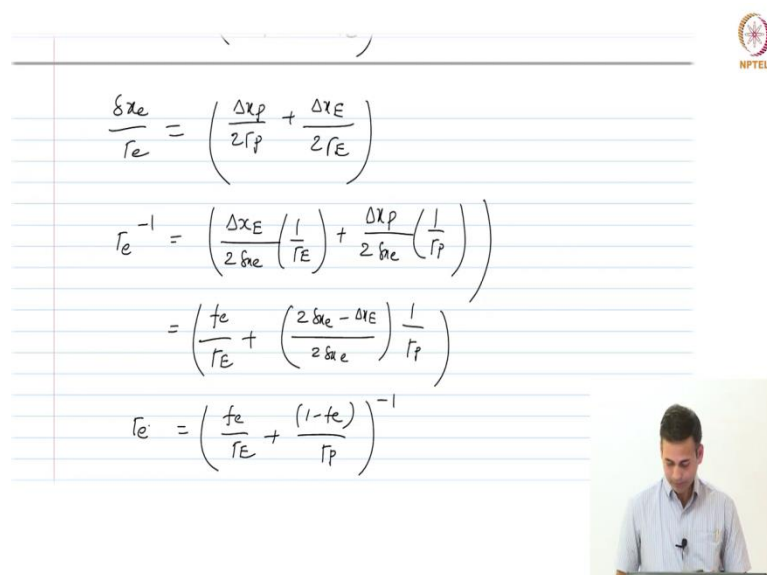 NPTEL
δxe/Γe = (ΔxP/2ΓP + ΔxE/2ΓE)
Γe⁻¹ = (ΔxE/2δxe (1/ΓE) + ΔxP/2δxe (1/ΓP)))
= (fe/ΓE + ((2δxe − ΔxE)/2δxe) 1/ΓP)
Γe = (fe/ΓE + (1−fe)/ΓP)⁻¹